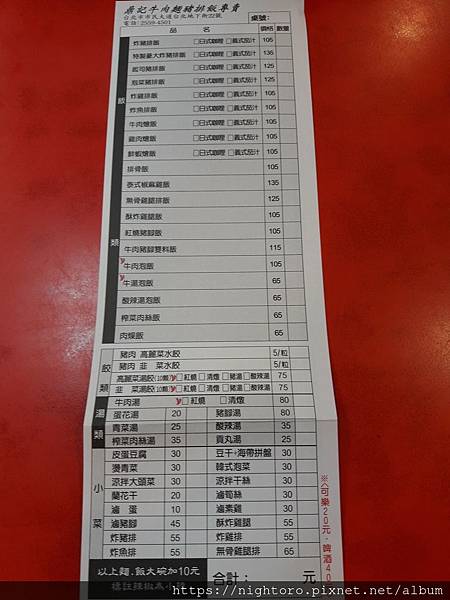 鼎記牛肉麵豬排飯專賣
台北市市民大道台北地下街22號
電話:2559-4501
桌號:
品 名 價格 數量
飯類
炸豬排飯 □日式咖哩 □義式茄汁 105
特製量大炸豬排飯 □日式咖哩 □義式茄汁 135
起司豬排飯 □日式咖哩 □義式茄汁 125
泡菜豬排飯 □日式咖哩 □義式茄汁 125
炸雞排飯 □日式咖哩 □義式茄汁 105
炸魚排飯 □日式咖哩 □義式茄汁 105
牛肉燴飯 □日式咖哩 □義式茄汁 105
雞肉燴飯 □日式咖哩 □義式茄汁 105
鮮蝦燴飯 □日式咖哩 □義式茄汁 105
排骨飯 105
泰式椒麻雞飯 135
無骨雞腿排飯 125
酥炸雞腿飯 105
紅燒豬腳飯 105
牛肉豬腳雙料飯 115
牛肉泡飯 105
牛湯泡飯 65
酸辣湯泡飯 65
榨菜肉絲飯 65
肉燥飯 65
餃類
豬肉 高麗菜水餃 5/粒
豬肉 韭 菜水餃 5/粒
高麗菜湯餃(10顆) □紅燒 □清燉 □豬湯 □酸辣湯 75
韭 菜湯餃(10顆) □紅燒 □清燉 □豬湯 □酸辣湯 75
湯類
牛肉湯 □紅燒 □清燉 80
蛋花湯 20 豬腳湯 80
青菜湯 25 酸辣湯 35
榨菜肉絲湯 35 貢丸湯 25
小菜
皮蛋豆腐 30 豆干+海帶拼盤 30
燙青菜 30 韓式泡菜 30
涼拌大頭菜 30 涼拌干絲 30
蘭花干 20 滷筍絲 30
滷 蛋 10 滷素雞 30
滷豬腳 45 酥炸雞腿 55
炸豬排 55 炸雞排 55
炸魚排 55 無骨雞腿排 65
以上麵.飯大碗加10元
合計: 元
※〈可樂20元.啤酒40
https://nightoro.pixnet.net/album